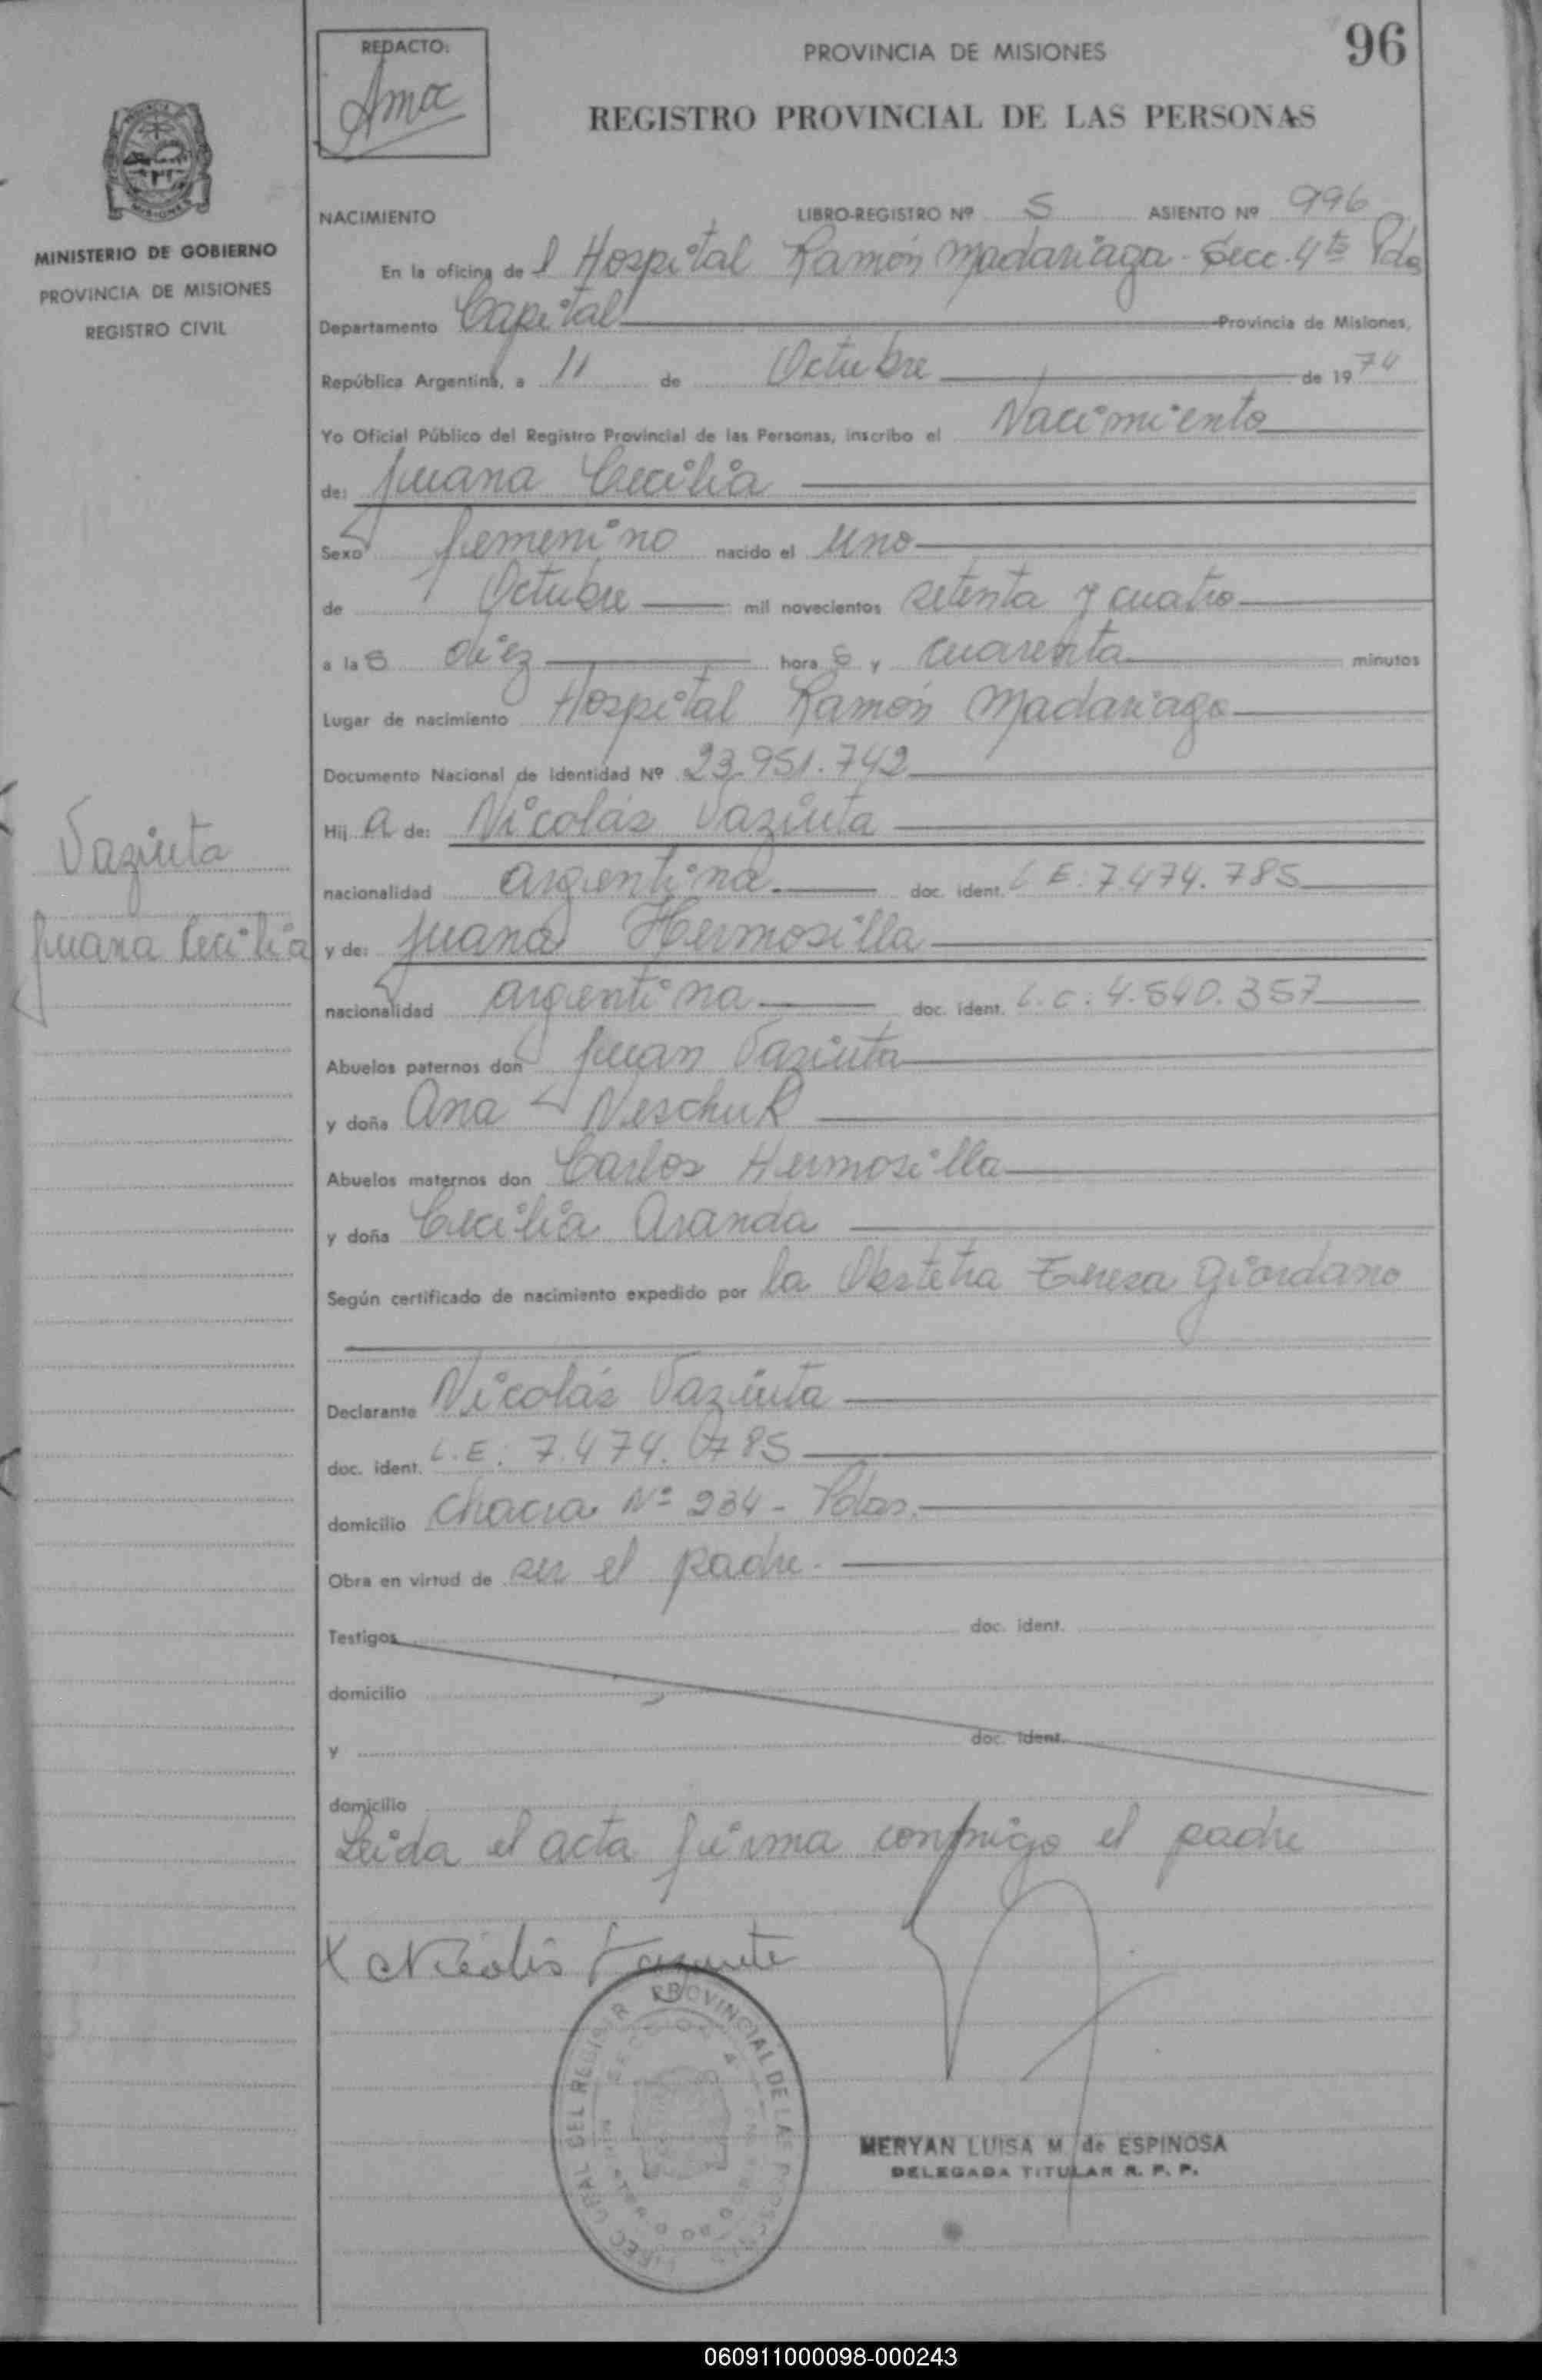 96
REDACTO:
PROVINCIA DE MISIONES
REGISTRO PROVINCIAL DE LAS PERSONAS
MISIONES
MINISTERIO DE GOBIERNO
PROVINCIA DE MISIONES
REGISTRO CIVIL
NACIMIENTO LIBRO-REGISTRO Nº 5 ASIENTO Nº 996
En la oficina de l Hospital Ramón Madariaga - Secc. 4ta Pdas
Departamento Capital Provincia de Misiones,
República Argentina, a 11 de Octubre de 1974
Yo Oficial Público del Registro Provincial de las Personas, inscribo el Nacimiento
de: Juana Cecilia
Sexo femenino nacido el uno
de Octubre mil novecientos setenta y cuatro
a las diez horas y cuarenta minutos
Lugar de nacimiento Hospital Ramón Madariaga
Documento Nacional de Identidad Nº 23.951.742
Hija de: Nicolás Vaziuta
nacionalidad argentina doc. ident. L E. 7.474.785
y de: Juana Hermosilla
nacionalidad argentina doc. ident. L.C. 4.540.357
Abuelos paternos don Juan Vaziuta
y doña Ana Neschuk
Abuelos maternos don Carlos Hermosilla
y doña Cecilia Aranda
Según certificado de nacimiento expedido por la Obstetra Teresa Giordano
Declarante Nicolás Vaziuta
doc. ident. L.E. 7.474.785
domicilio Chacra Nº 234 - Pdas.
Obra en virtud de ser el padre.
Testigos doc. ident.
domicilio
y doc. ident.
domicilio
Leida el acta firma conmigo el padre
Vaziuta
Juana Cecilia
X Nicolás
PROVINCIAL DE LAS
DEL
MERYAN LUISA M. de ESPINOSA
DELEGADA TITULAR R. P. P.
060911000098-000243